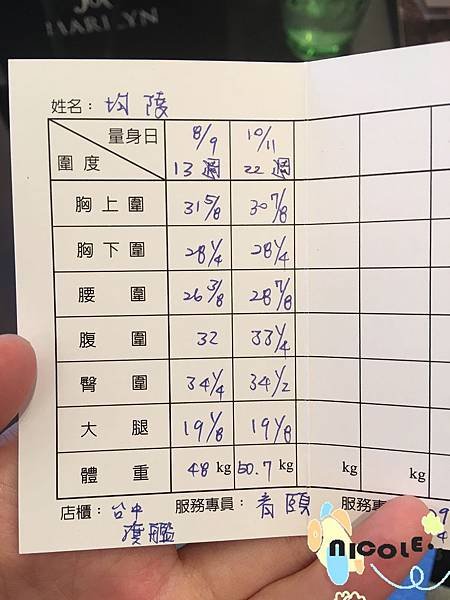 MARI_YN
姓名： 均 陵
量身日 8/9 10/11
圍度 13 週 22 週
胸上圍 31 5/8 30 7/8
胸下圍 28 1/4 28 1/4
腰圍 26 3/8 28 7/8
腹圍 32 33 1/4
臀圍 34 1/4 34 1/2
大腿 19 1/8 19 1/8
體重 48 kg 50.7 kg kg kg
店櫃： 台中 服務專員： 青頤 服務專
旗艦
NICOLE.